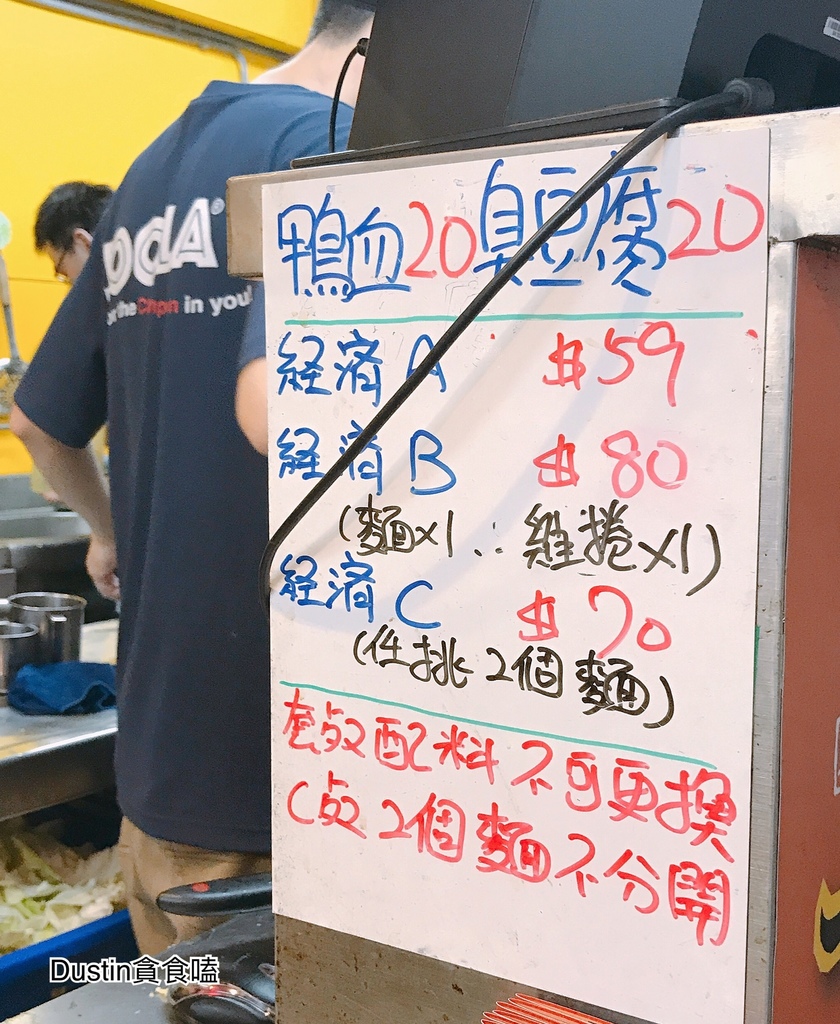 鴨血20臭豆腐20
経濟A $59
経濟B $80
(麵x1 雞捲x1)
経濟C $70
(任挑2個麵)
配料不可更換
2個麵不分開
in you!
Dustin貪食嗑